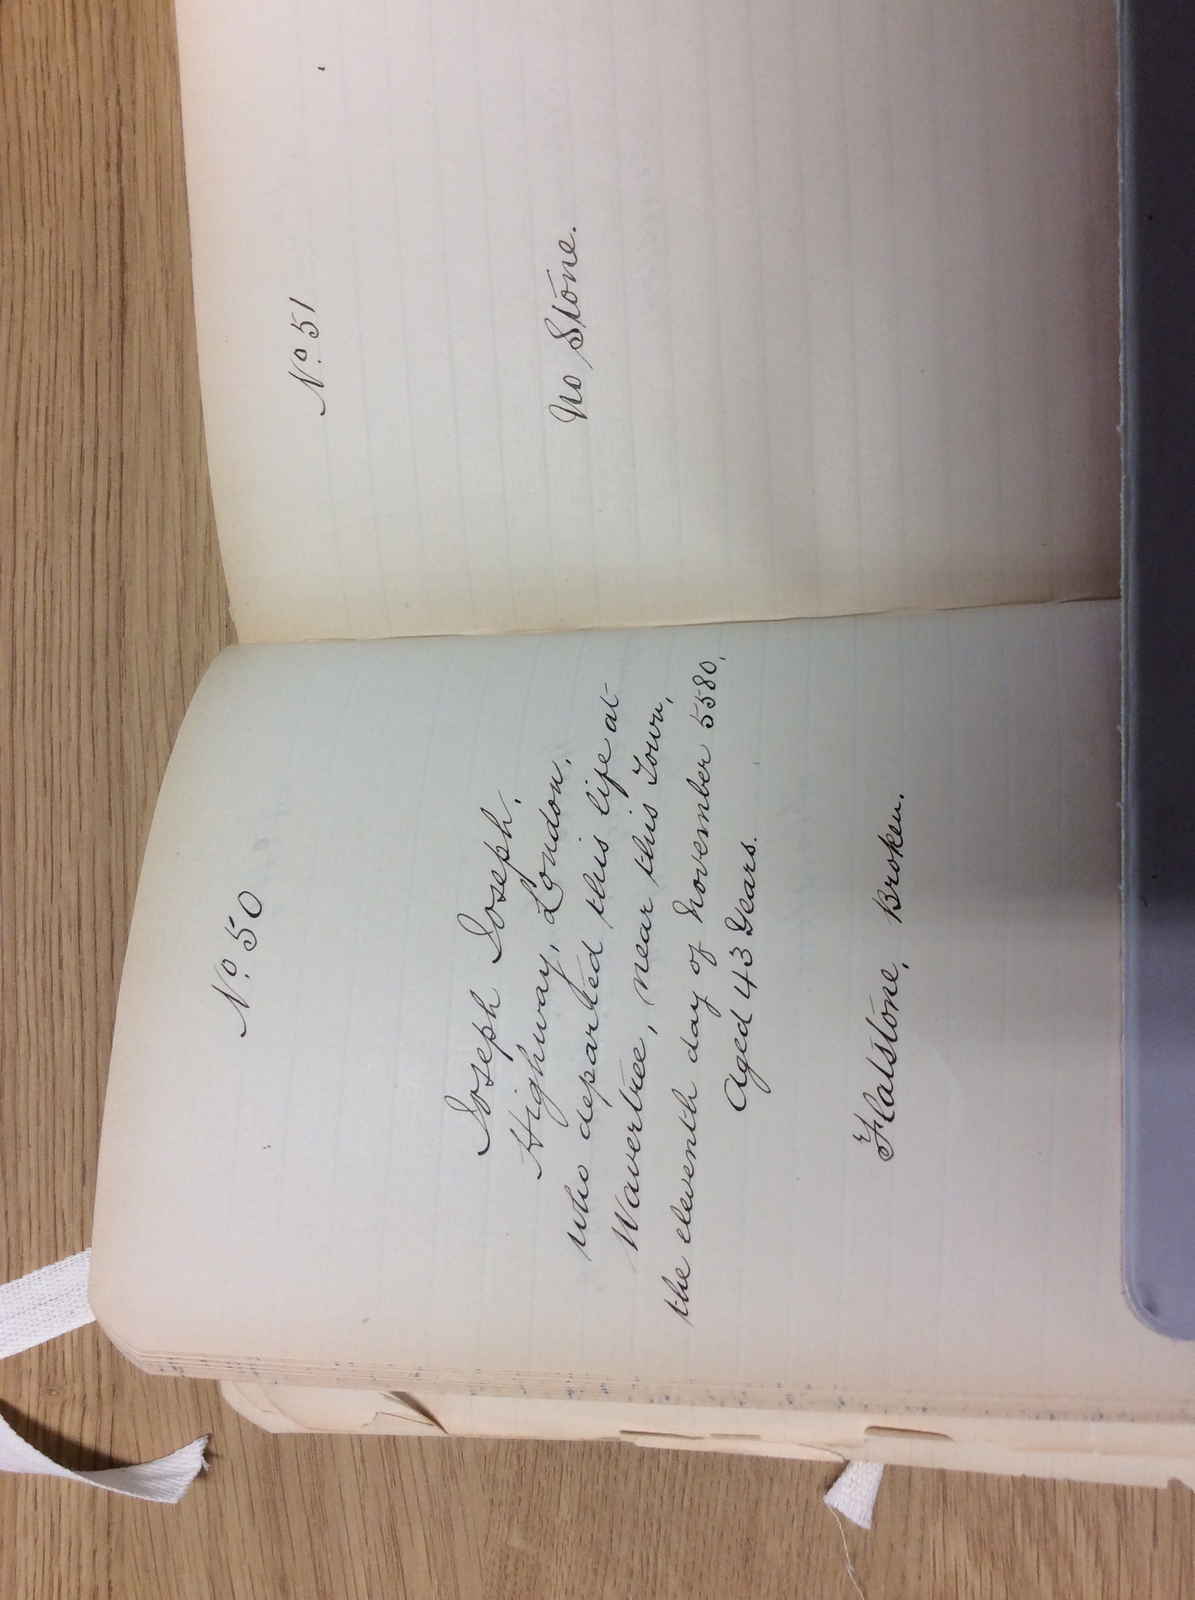 No. 50
Joseph Joseph.
Highway, London.
who departed this life at
Wavertree, near this Town,
the eleventh day of November 5580.
Aged 43 Years.
Flatstone, Broken.
No. 51
No Stone.